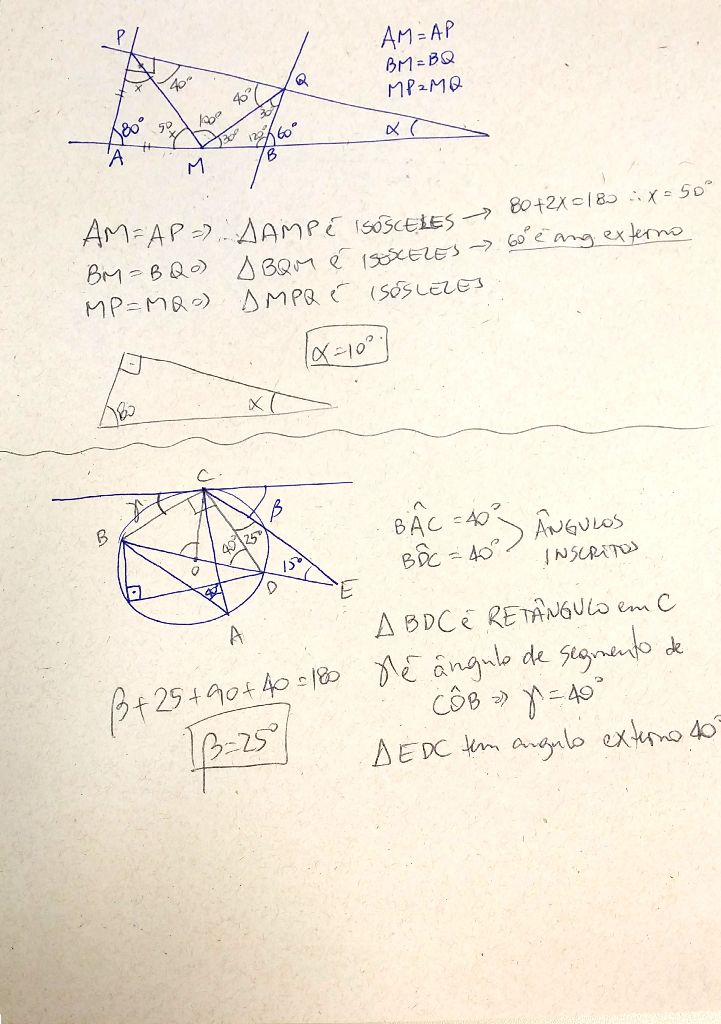 P
AM=AP
BM=BQ
MP=MQ
x
x
40°
40°
Q
80°
50
100°
30°
30°
120°
60°
α
A
M
B
AM=AP => ∆AMP É ISÓSCELES → 80+2X=180 ∴ X=50°
BM=BQ => ∆BQM É ISÓSCELES → 60° é ang externo
MP=MQ => ∆MPQ É ISÓSCELES
α=10°
80
α
C
γ
β
B
40°
25°
O
15°
E
D
40°
A
BÂC = 40° ÂNGULOS
BD̂C = 40° INSCRITOS
∆BDC É RETÂNGULO em C
γ é ângulo de segmento de
CÔB => γ=40°
β+25+90+40=180
β=25°
∆EDC tem angulo externo 40°